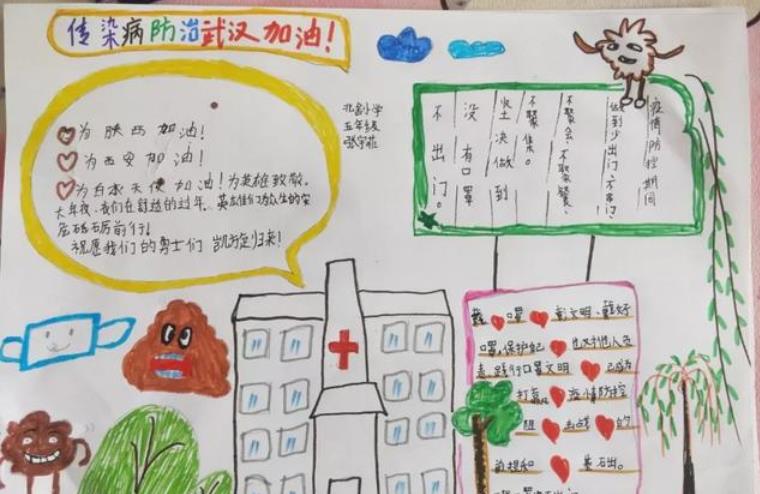 传染病防治武汉加油!
为陕西加油!
为西安加油!
为白衣天使加油!为英雄致敬。
大年夜,我们在舒适的过年。英雄们放众生的安
危砥砺前行!
祝愿我们的勇士们 凯旋归来!
五年级
疫情防控期间
做到少出门
不聚会、不聚餐、
不聚集。
坚决做到
没有口罩
不出门。
戴口罩 彰文明、戴好
口罩,保护 也对他人负
责,践行口罩文明 已成为
打赢 疫情防控
阻击战 的
前提和 基石出。